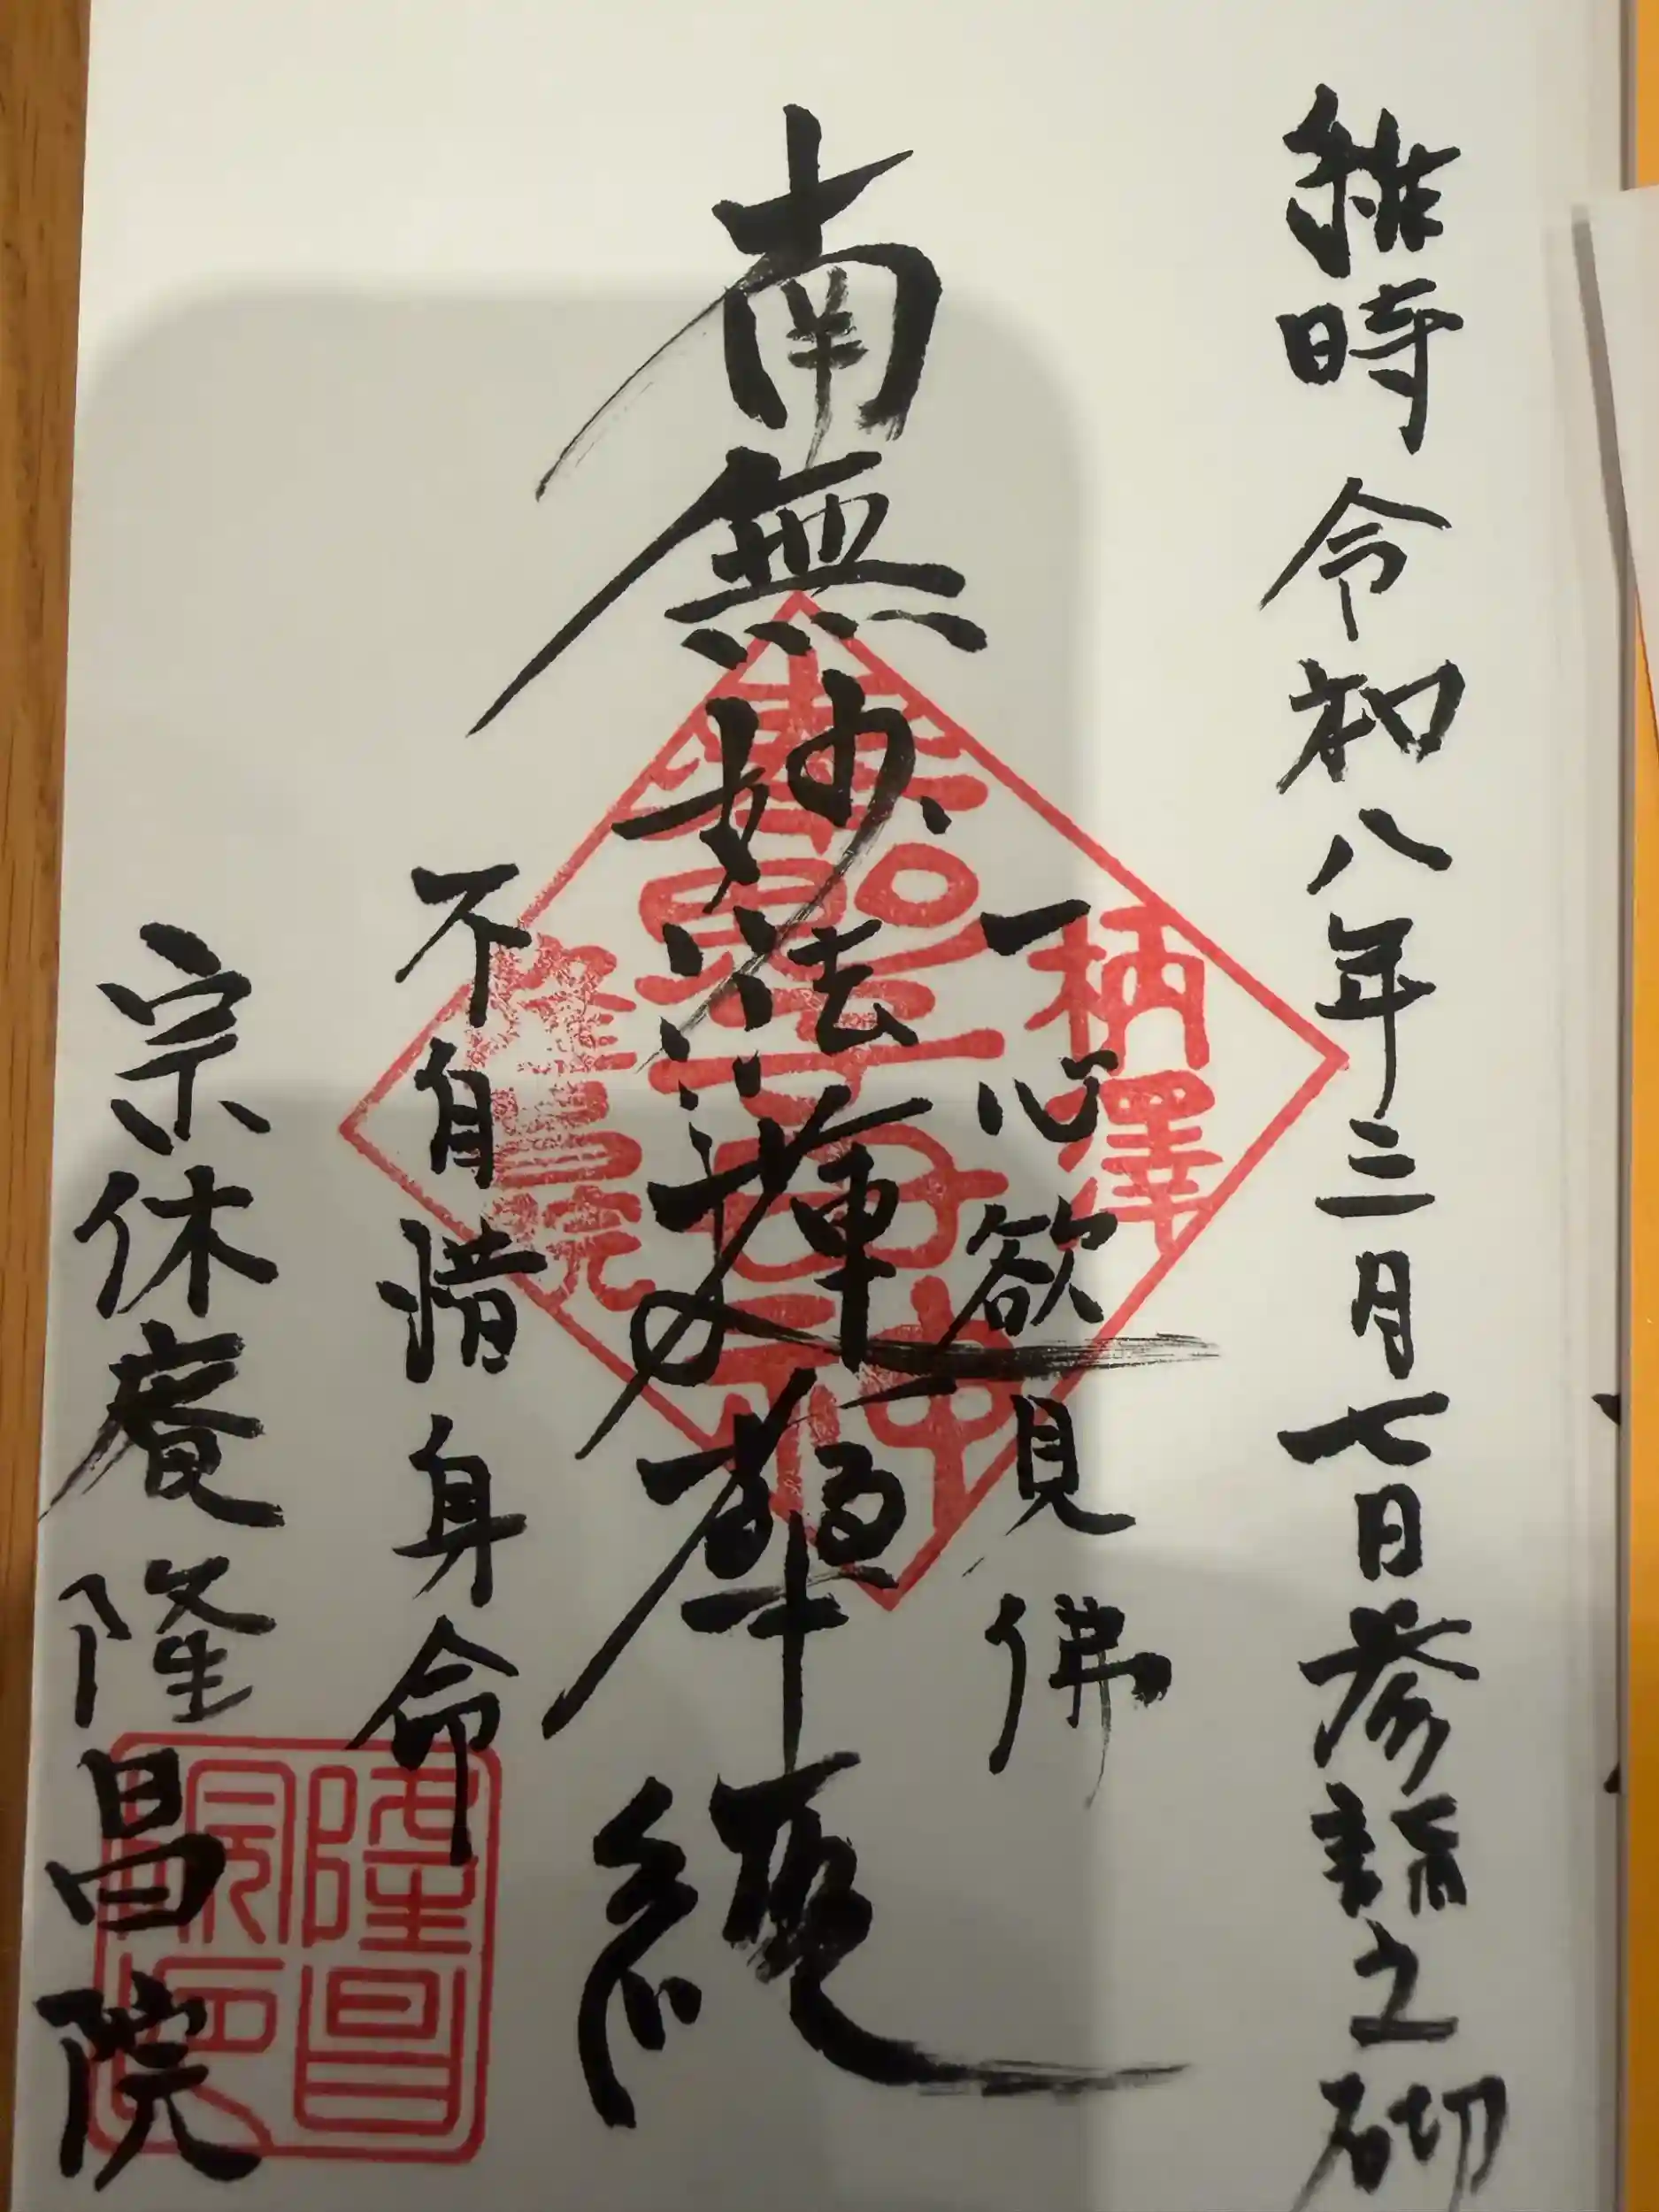 維時 令和八年三月七日参詣之砌
一心欲見佛
南無妙法蓮華経
不自惜身命
宗休庵 隆昌院
柄澤
隆昌院
隆昌院